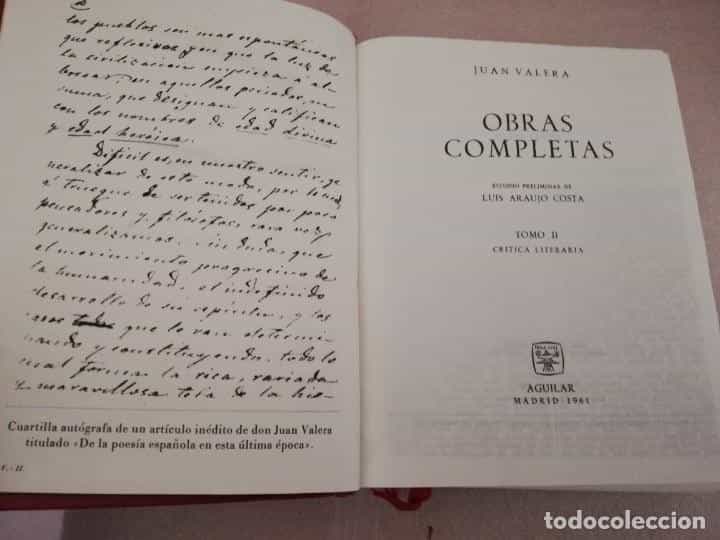 los pueblos son mas espontáneas
que reflexivas y en que la luz de
la civilizacion empieza á al-
borear; en aquellos periodos, en
suma, que designan y califican
con los nombres de edad divina
y edad heróica.
Dificil es, en nuestro sentir, ge
neralizar de este modo, por lo que
á trueque de ser tenidos por poco
pensadores y filósofos, rara vez
generalizamos. Sin duda, que
el movimiento progresivo de
la humanidad, el indefinido
desarrollo de su espíritu, y las
todos que le van determi
nando y constituyendo, todo lo
cual forma la rica, variada
y maravillosa tela de la his-
Cuartilla autógrafa de un artículo inédito de don Juan Valera
titulado «De la poesía española en esta última época».
V.-II
JUAN VALERA
OBRAS
COMPLETAS
ESTUDIO PRELIMINAR DE
LUIS ARAUJO COSTA
TOMO II
CRITICA LITERARIA
AGUILAR
MADRID-1961
todocoleccion
todocoleccion.net